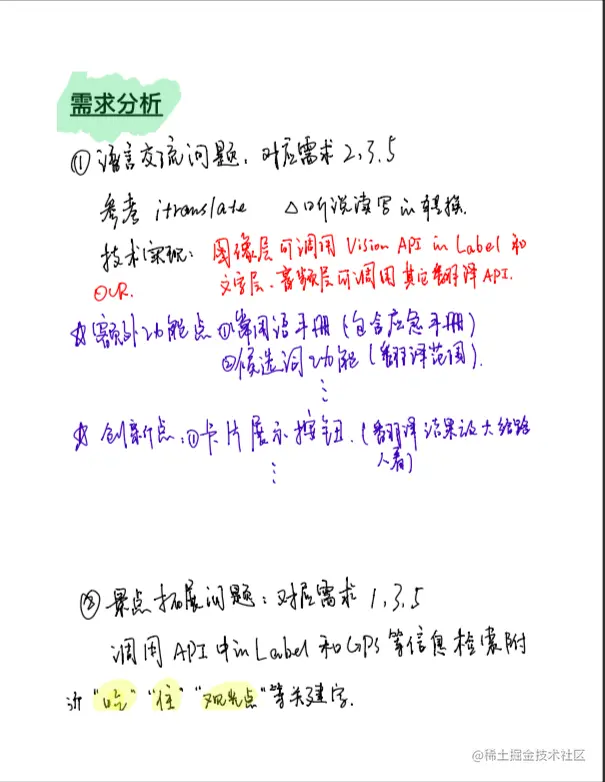 需求分析
①语言交流问题，对应需求2,3,5
参考 itranslate △听说读写的转换.
技术实现: 图像层可调用 Vision API 的 Label 和
OCR. 文字层、音频层可调用其它翻译API.
☆额外功能点 ①常用语手册 (包含应急手册)
②候选词功能 (翻译范围).
⋮
☆ 创新点: ①卡片展示按钮. (翻译结果放大给路
人看)
⋮
②景点拓展问题: 对应需求 1,3,5
调用API中的Label和GPS等信息检索附
近"吃" "住" "观光点"等关建字.
@稀土掘金技术社区